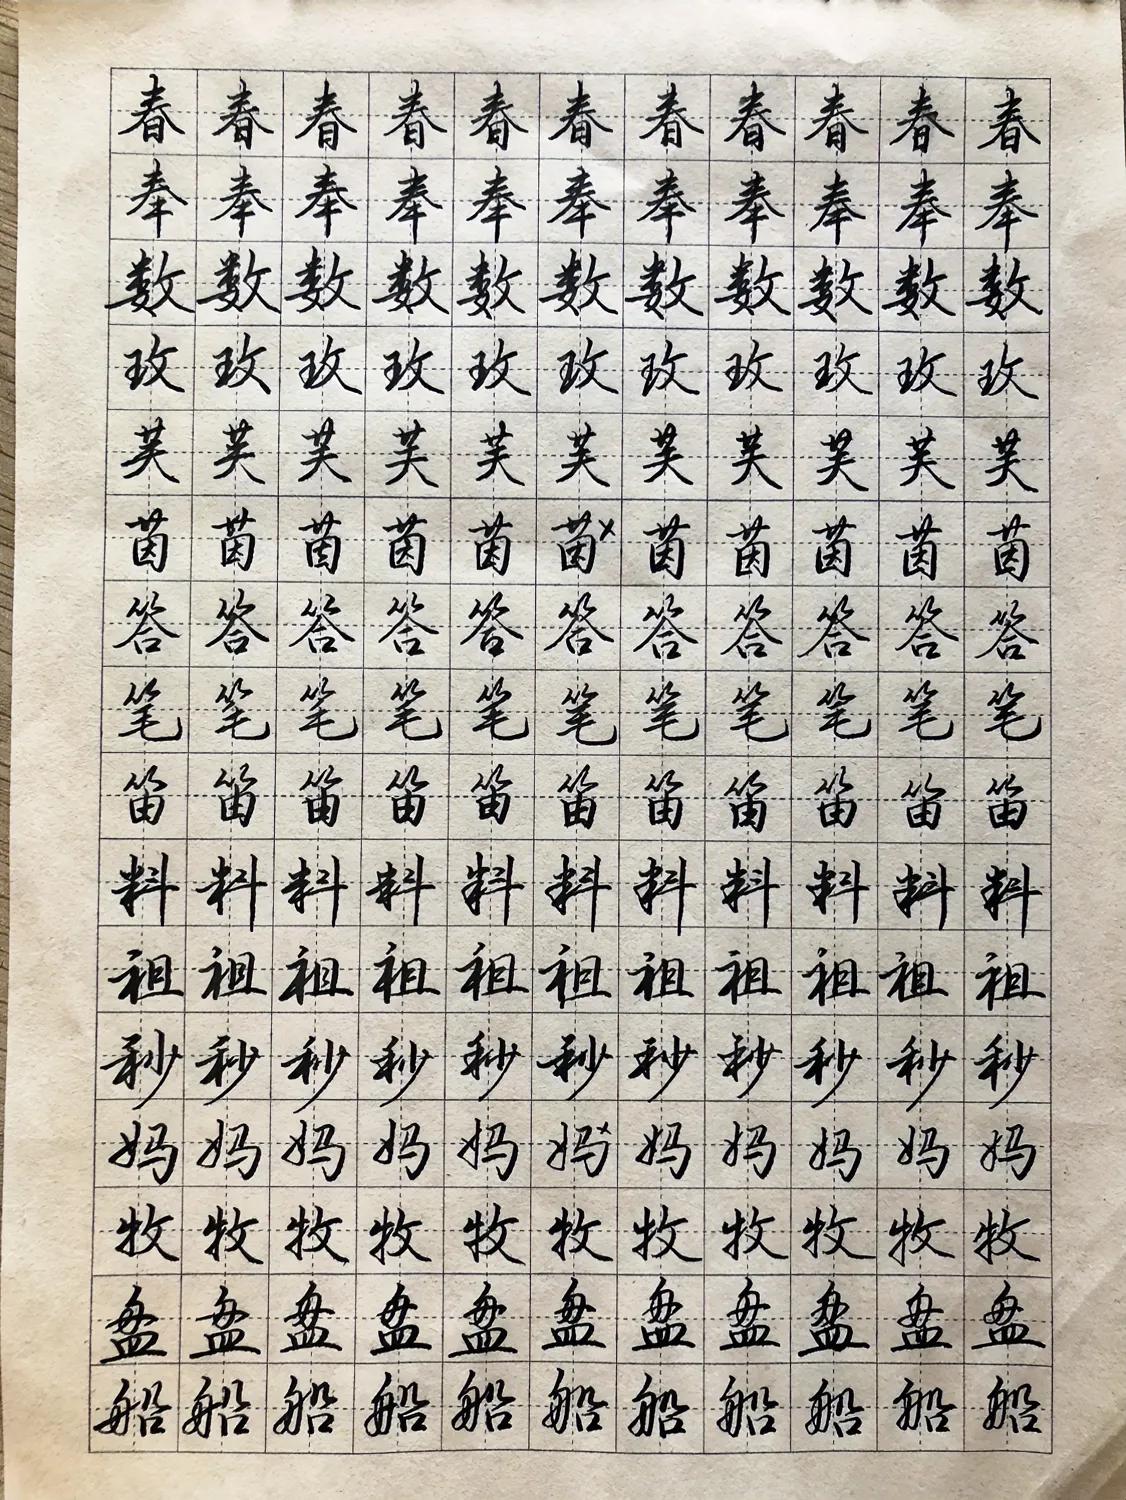 春春春春春春春春春春春
奉奉奉奉奉奉奉奉奉奉奉
数数数数数数数数数数数
玫玫玫玫玫玫玫玫玫玫玫
芙芙芙芙芙芙芙芙芙芙芙
茵茵茵茵茵茵茵茵茵茵茵
答答答答答答答答答答答
笔笔笔笔笔笔笔笔笔笔笔
笛笛笛笛笛笛笛笛笛笛笛
料料料料料料料料料料料
祖祖祖祖祖祖祖祖祖祖祖
秒秒秒秒秒秒秒秒秒秒秒
妈妈妈妈妈妈妈妈妈妈妈
牧牧牧牧牧牧牧牧牧牧牧
盘盘盘盘盘盘盘盘盘盘盘
船船船船船船船船船船船